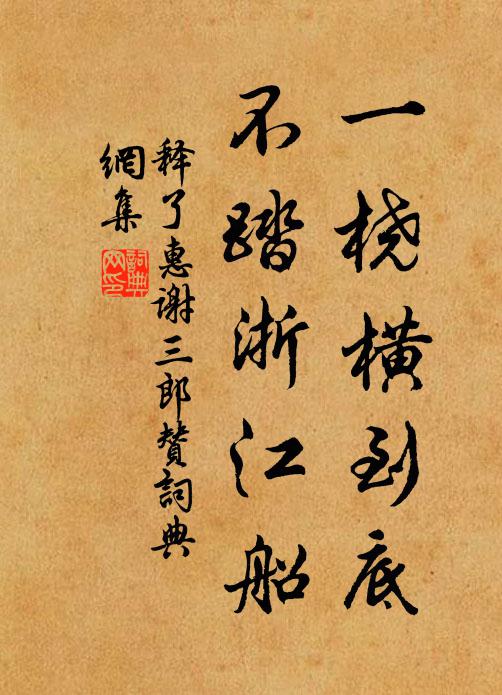 一桡横到底
不踏浙江船
释了惠谢三郎赞詞典
網集
詞典网印